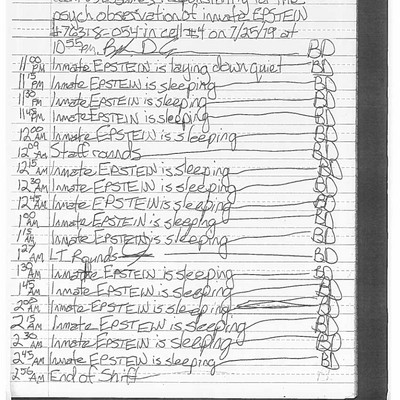 psych observation of inmate EPSTEIN
#76318-054 in cell #4 on 7/25/19 at
10:55 PM. BD
11:00 PM Inmate EPSTEIN is laying down quiet BD
11:15 PM Inmate EPSTEIN is sleeping BD
11:30 PM Inmate EPSTEIN is sleeping BD
11:45 PM Inmate EPSTEIN is sleeping BD
12:00 AM Inmate EPSTEIN is sleeping BD
12:09 AM Staff rounds BD
12:15 AM Inmate EPSTEIN is sleeping BD
12:30 AM Inmate EPSTEIN is sleeping BD
12:45 AM Inmate EPSTEIN is sleeping BD
1:00 AM Inmate EPSTEIN is sleeping BD
1:15 AM Inmate EPSTEIN is sleeping BD
AM LT Rounds BD
1:30 AM Inmate EPSTEIN is sleeping BD
1:45 AM Inmate EPSTEIN is sleeping BD
2:00 AM Inmate EPSTEIN is sleeping BD
2:15 AM Inmate EPSTEIN is sleeping BD
2:30 AM Inmate EPSTEIN is sleeping BD
2:45 AM Inmate EPSTEIN is sleeping BD
2:56 AM End of Shift